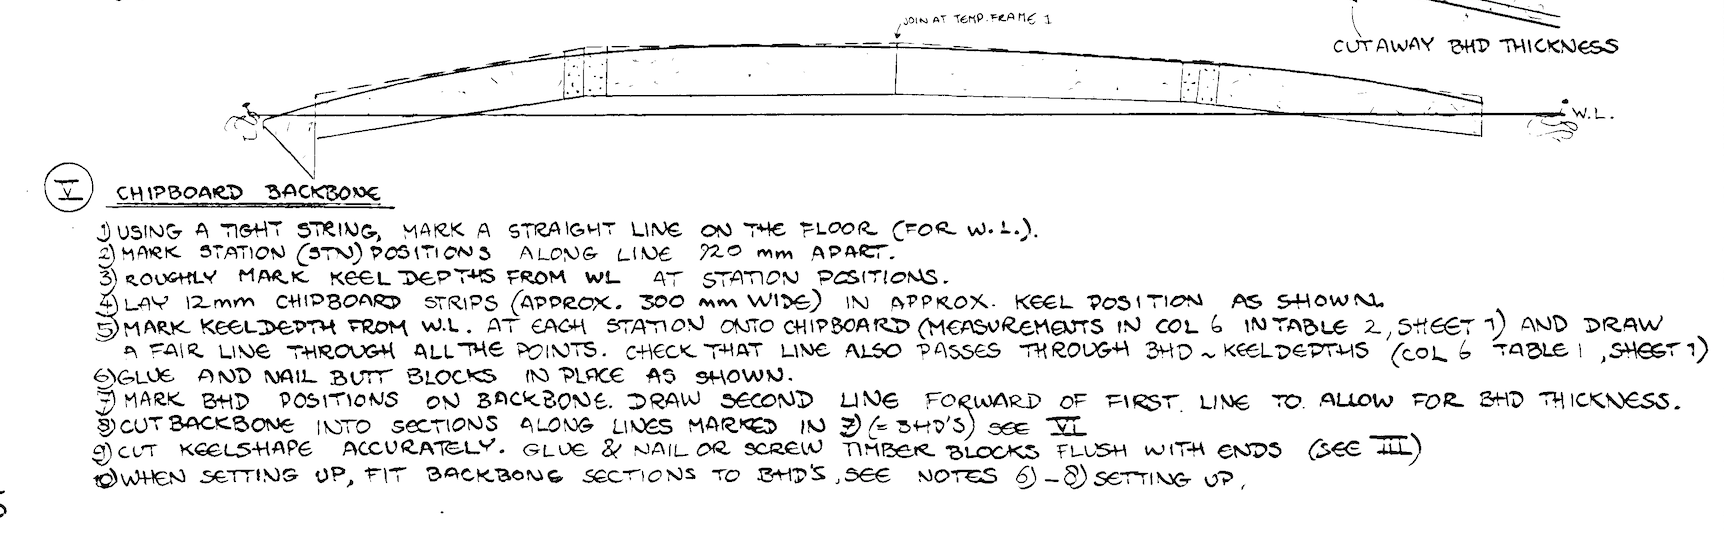 JOIN AT TEMP. FRAME 1
CUTAWAY BHD THICKNESS
W.L.
V CHIPBOARD BACKBONE
1) USING A TIGHT STRING, MARK A STRAIGHT LINE ON THE FLOOR (FOR W.L.).
2) MARK STATION (STN) POSITIONS ALONG LINE 920 mm APART.
3) ROUGHLY MARK KEEL DEPTHS FROM WL AT STATION POSITIONS.
4) LAY 12mm CHIPBOARD STRIPS (APPROX. 300 mm WIDE) IN APPROX. KEEL POSITION AS SHOWN.
5) MARK KEELDEPTH FROM W.L. AT EACH STATION ONTO CHIPBOARD (MEASUREMENTS IN COL 6 IN TABLE 2, SHEET 1) AND DRAW
A FAIR LINE THROUGH ALL THE POINTS. CHECK THAT LINE ALSO PASSES THROUGH BHD ~ KEELDEPTHS (COL 6 TABLE 1, SHEET 1)
6) GLUE AND NAIL BUTT BLOCKS IN PLACE AS SHOWN.
7) MARK BHD POSITIONS ON BACKBONE. DRAW SECOND LINE FORWARD OF FIRST LINE TO ALLOW FOR BHD THICKNESS.
8) CUT BACKBONE INTO SECTIONS ALONG LINES MARKED IN 7) (= BHD'S) SEE VI
9) CUT KEELSHAPE ACCURATELY. GLUE & NAIL OR SCREW TIMBER BLOCKS FLUSH WITH ENDS (SEE III)
10) WHEN SETTING UP, FIT BACKBONE SECTIONS TO BHD'S, SEE NOTES 6) - 8) SETTING UP,